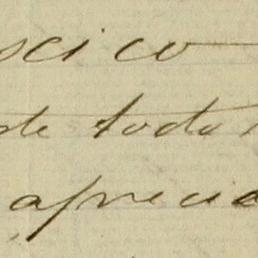 scico
de todas
apreció